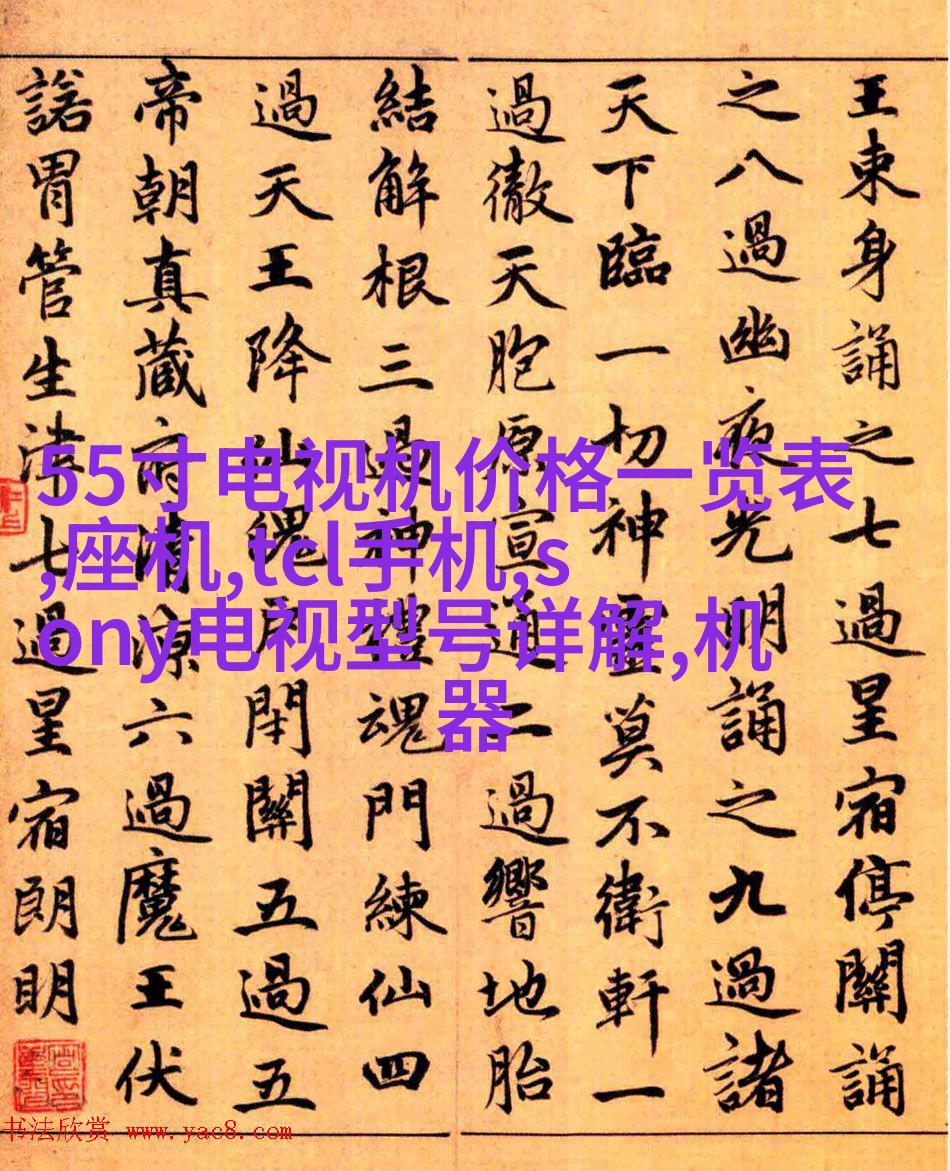 王東身誦之七過星宿停關誦
之八過幽夜光明誦之九過諸
天下臨一切神靈莫不衛軒一
過徹天胞原宣通二過響地胎
結解根三過神禮魂門練仙四
過天王降仙魄戶閇關五過五
帝朝真藏府清涼六過魔王伏
諾胃管生津七過星宿朗明
55寸电视机价格一览表
,座机,tcl手机,s
ony电视型号详解,机
器
书法欣赏 www.yac8.com